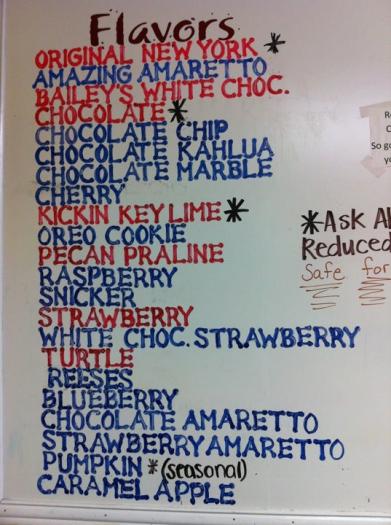 Flavors
ORIGINAL NEW YORK *
AMAZING AMARETTO
BAILEY'S WHITE CHOC.
CHOCOLATE *
CHOCOLATE CHIP
CHOCOLATE KAHLUA
CHOCOLATE MARBLE
CHERRY
KICKIN KEY LIME *
OREO COOKIE
PECAN PRALINE
RASPBERRY
SNICKER
STRAWBERRY
WHITE CHOC. STRAWBERRY
TURTLE
REESES
BLUEBERRY
CHOCOLATE AMARETTO
STRAWBERRY AMARETTO
PUMPKIN *(seasonal)
CARAMEL APPLE
So
*Ask
Reduced
Safe for